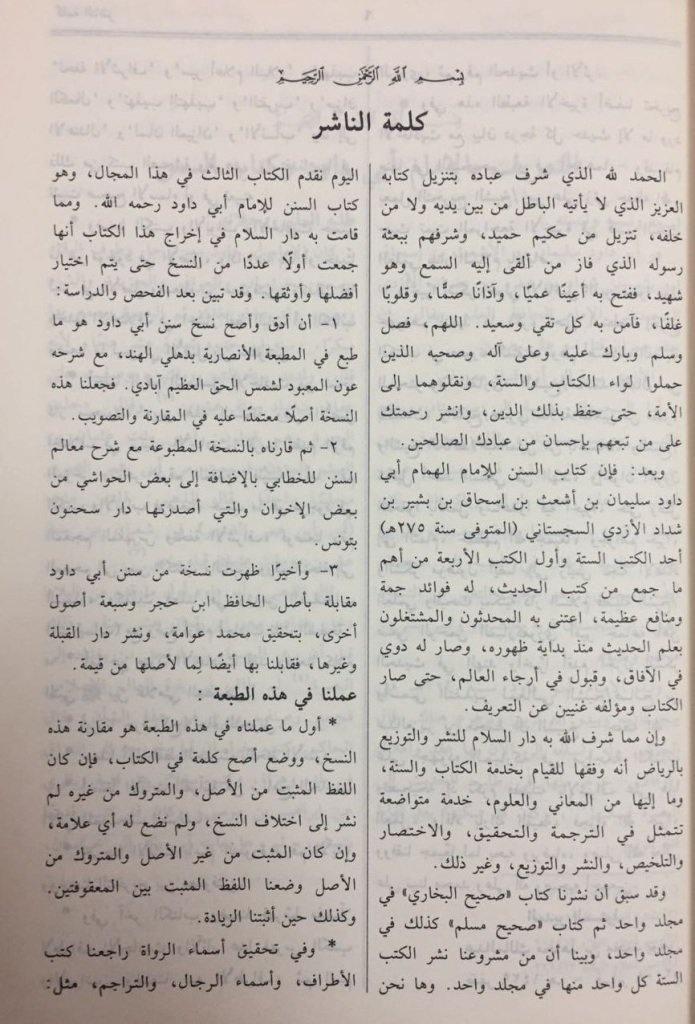 بسم الله الرحمن الرحيم
كلمة الناشر
الحمد لله الذي شرف عباده بتنزيل كتابه
العزيز الذي لا يأتيه الباطل من بين يديه ولا من
خلفه، تنزيل من حكيم حميد، وشرفهم ببعثة
رسوله الذي فاز من ألقى إليه السمع وهو
شهيد، ففتح به أعينًا عميًا، وآذانًا صمًّا، وقلوبًا
غلفًا، فآمن به كل تقي وسعيد. اللهم، فصل
وسلم وبارك عليه وعلى آله وصحبه الذين
حملوا لواء الكتاب والسنة، ونقلوهما إلى
الأمة، حتى حفظ بذلك الدين، وانشر رحمتك
على من تبعهم بإحسان من عبادك الصالحين.
وبعد: فإن كتاب السنن للإمام الهمام أبي
داود سليمان بن أشعث بن إسحاق بن بشير بن
شداد الأزدي السجستاني (المتوفى سنة ٢٧٥هـ)
أحد الكتب الستة وأول الكتب الأربعة من أهم
ما جمع من كتب الحديث، له فوائد جمة
ومنافع عظيمة، اعتنى به المحدثون والمشتغلون
بعلم الحديث منذ بداية ظهوره، وصار له دوي
في الآفاق، وقبول في أرجاء العالم، حتى صار
الكتاب ومؤلفه غنيين عن التعريف.
وإن مما شرف الله به دار السلام للنشر والتوزيع
بالرياض أنه وفقها للقيام بخدمة الكتاب والسنة،
وما إليها من المعاني والعلوم، خدمة متواضعة
تتمثل في الترجمة والتحقيق، والاختصار
والتلخيص، والنشر والتوزيع، وغير ذلك.
وقد سبق أن نشرنا كتاب «صحيح البخاري» في
مجلد واحد ثم كتاب «صحيح مسلم» كذلك في
مجلد واحد، وبينا أن من مشروعنا نشر الكتب
الستة كل واحد منها في مجلد واحد. وها نحن
اليوم نقدم الكتاب الثالث في هذا المجال، وهو
كتاب السنن للإمام أبي داود رحمه الله. ومما
قامت به دار السلام في إخراج هذا الكتاب أنها
جمعت أولًا عددًا من النسخ حتى يتم اختيار
أفضلها وأوثقها. وقد تبين بعد الفحص والدراسة:
١- أن أدق وأصح نسخ سنن أبي داود هو ما
طبع في المطبعة الأنصارية بدهلي الهند، مع شرحه
عون المعبود لشمس الحق العظيم آبادي. فجعلنا هذه
النسخة أصلًا معتمدًا عليه في المقارنة والتصويب.
٢- ثم قارناه بالنسخة المطبوعة مع شرح معالم
السنن للخطابي بالإضافة إلى بعض الحواشي من
بعض الإخوان والتي أصدرتها دار سحنون
بتونس.
٣- وأخيرًا ظهرت نسخة من سنن أبي داود
مقابلة بأصل الحافظ ابن حجر وسبعة أصول
أخرى، بتحقيق محمد عوامة، ونشر دار القبلة
وغيرها، فقابلنا بها أيضًا لِما لأصلها من قيمة.
عملنا في هذه الطبعة :
* أول ما عملناه في هذه الطبعة هو مقارنة هذه
النسخ، ووضع أصح كلمة في الكتاب، فإن كان
اللفظ المثبت من الأصل، والمتروك من غيره لم
نشر إلى اختلاف النسخ، ولم نضع له أي علامة،
وإن كان المثبت من غير الأصل والمتروك من
الأصل وضعنا اللفظ المثبت بين المعقوفتين.
وكذلك حين أثبتنا الزيادة.
* وفي تحقيق أسماء الرواة راجعنا كتب
الأطراف، وأسماء الرجال، والتراجم، مثل: